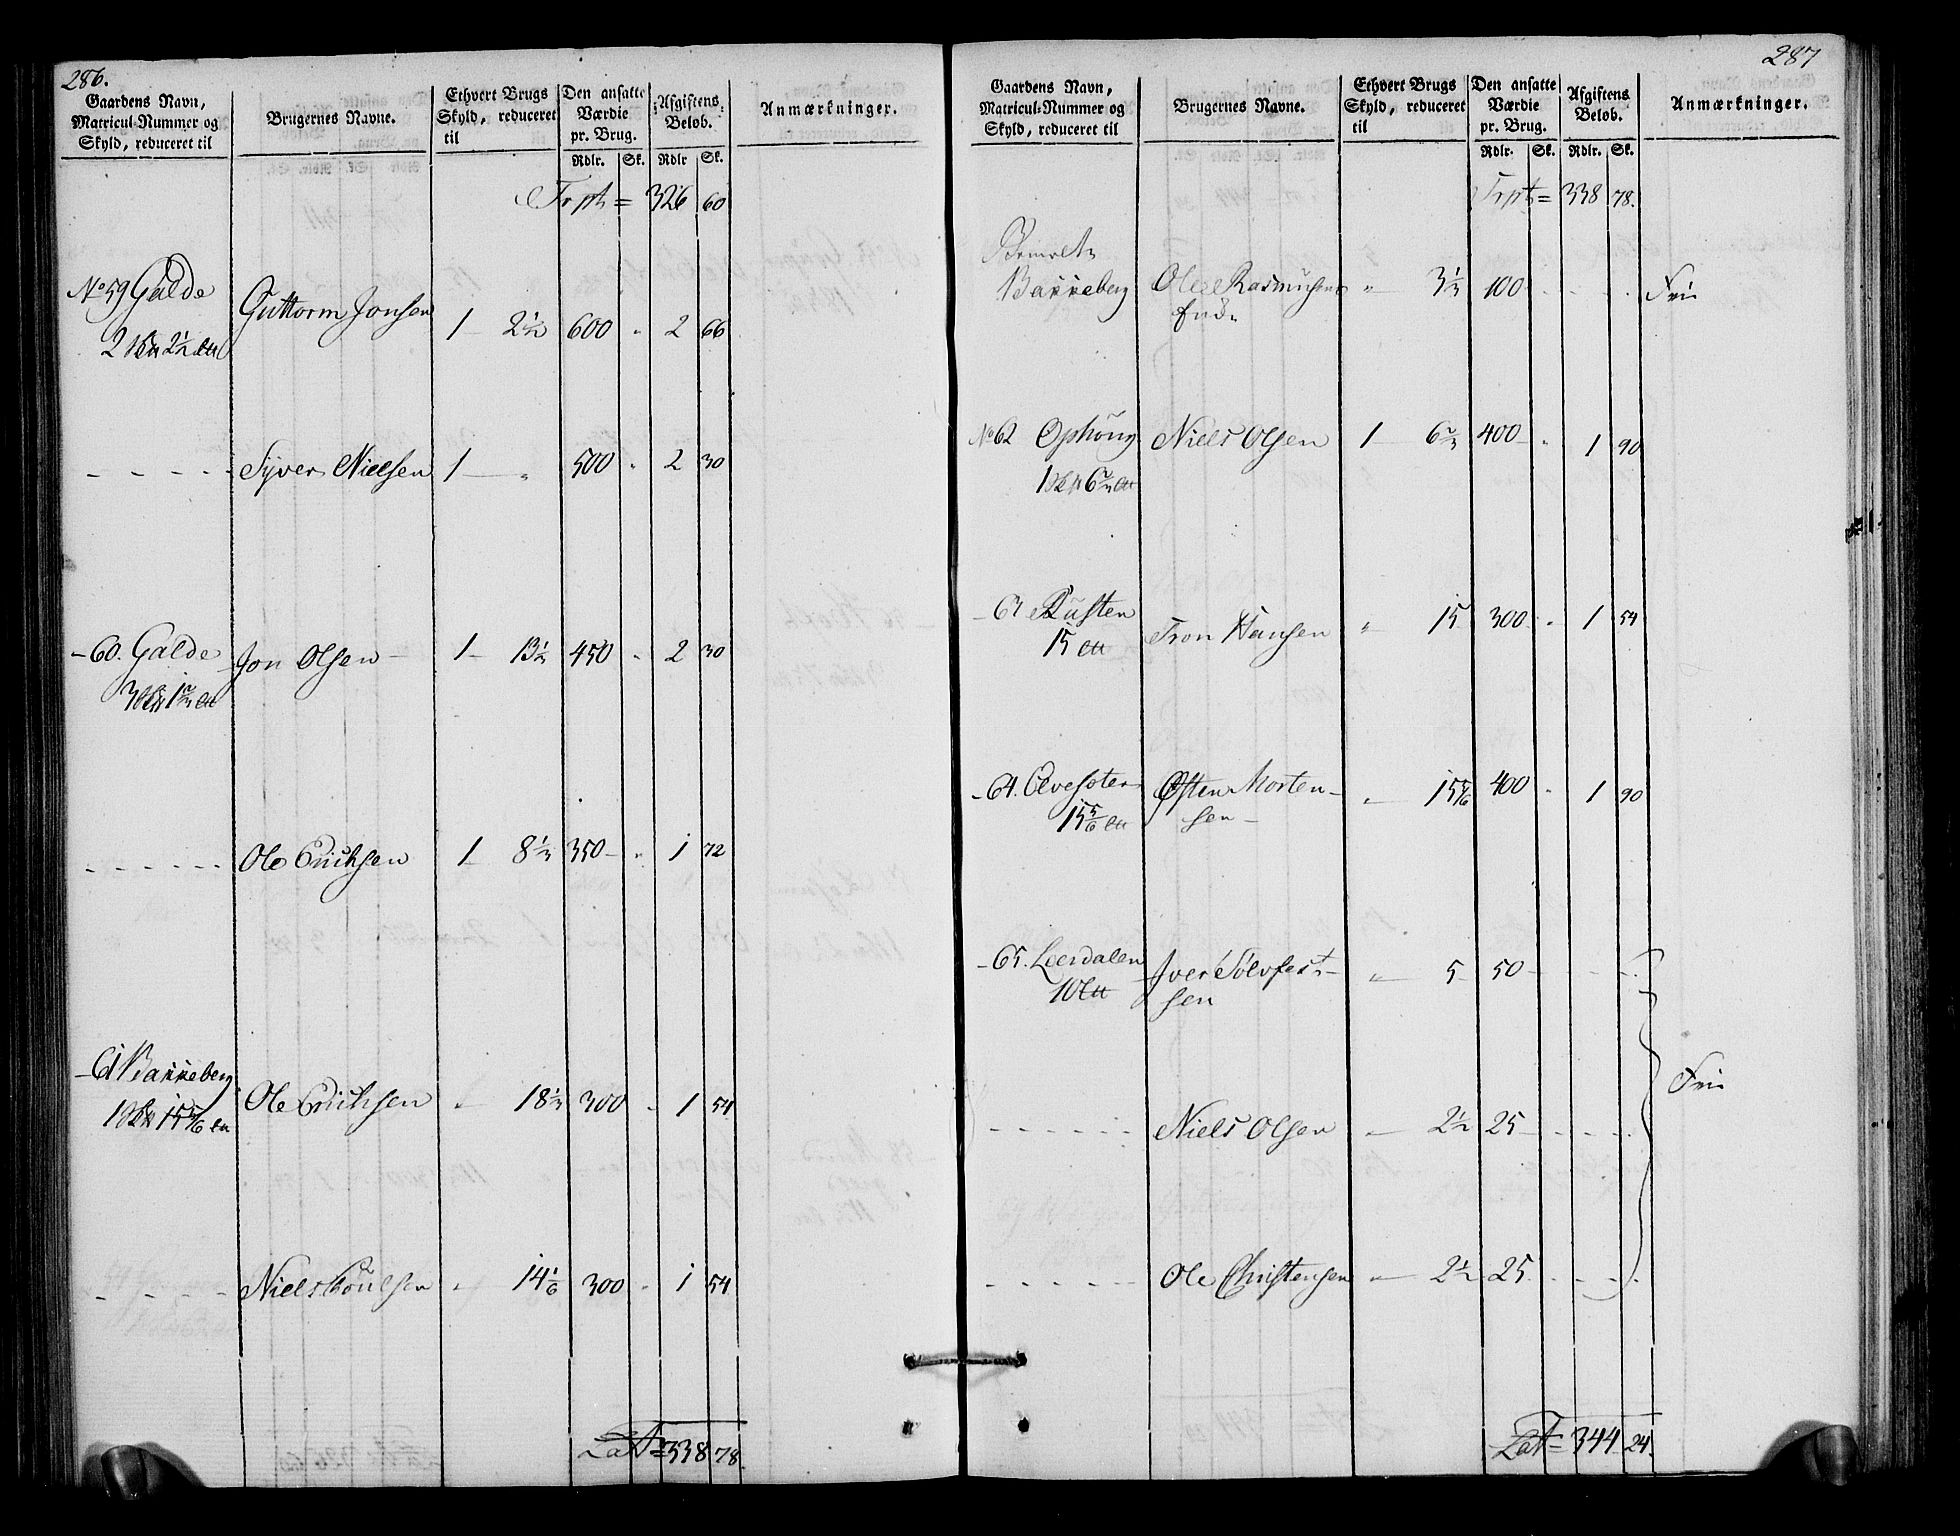 286.
Gaardens Navn, Matricul-Nummer og Skyld, reduceret til | Brugernes Navne. | Ethvert Brugs Skyld, reduceret til | Den ansatte Værdie pr. Brug. Rdlr. Sk. | Afgiftens Beløb. Rdlr Sk. | Anmærkninger.
Trpt = 326 60
No 59 Galde Guttorm Jonsen 1 2½ 600 " 2 66
2 2½
- - - - Syver Nielsen 1 " 500 " 2 30
- 60. Galde Jon Olsen 1 13⅓ 450 " 2 30
3 1⅔
- - - - - Ole Erichsen 1 8⅓ 350 " 1 72
- 61 Bakkeberg Ole Erichsen " 18⅓ 300 " 1 54
1 15⅚
- - - - Niels Poulsen " 14⅙ 300 " 1 54
Lat = 338 78.
287
Gaardens Navn, Matricul-Nummer og Skyld, reduceret til | Brugernes Navne. | Ethvert Brugs Skyld, reduceret til | Den ansatte Værdie pr. Brug. Rdlr. Sk. | Afgiftens Beløb. Rdlr. Sk. | Anmærkninger.
Trpt = 338 78.
Bemelte
Bakkeberg Ole Rasmusens " 3⅓ 100 - - - Fri
Enke
No 62 Ophöug Niels Olsen 1 6⅔ 400 " 1 90
1 6⅔
- 63 Rusten Tron Hansen " 15 300 " 1 54
15
- 64. Olvesoter Østen Morten- " 15⅚ 400 " 1 90
15⅚ sen -
- 65. Leerdalen Iver Sölfest- " 5 50 - - -
10 sen
- - - - - Niels Olsen " 2½ 25 - - - Fri
- - - - - Ole Christensen " 2½ 25 - - -
Lat = 344 24.